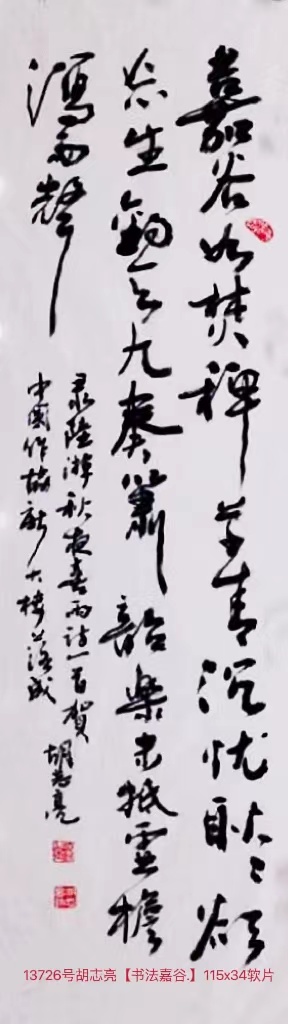 嘉谷如焚稗草青沉忧耿耿欲
忘生鈞天九奏簫韶樂未抵虛檐
瀉雨聲
录陸游秋夜喜雨詩一首賀
中國作協新大楼落成
胡志亮
13726号胡志亮【书法嘉谷.】115x34软片